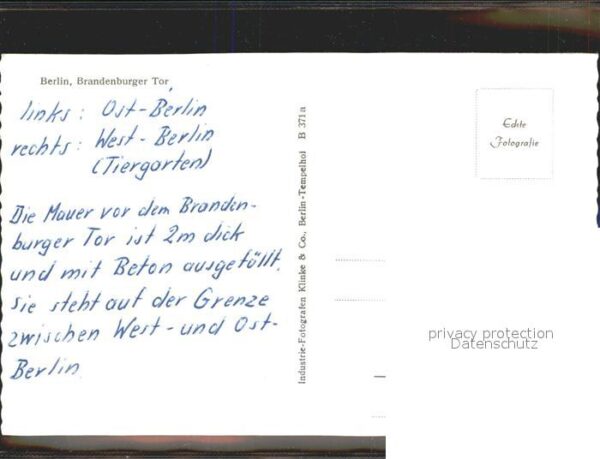 Berlin, Brandenburger Tor
links: Ost-Berlin
rechts: West-Berlin
(Tiergarten)
Die Mauer vor dem Branden-
burger Tor ist 2m dick
und mit Beton ausgefüllt.
Sie steht auf der Grenze
zwischen West- und Ost-
Berlin
Industrie-Fotografen Klinke & Co., Berlin-Tempelhof B 371a
Echte
Fotografie
privacy protection
Datenschutz